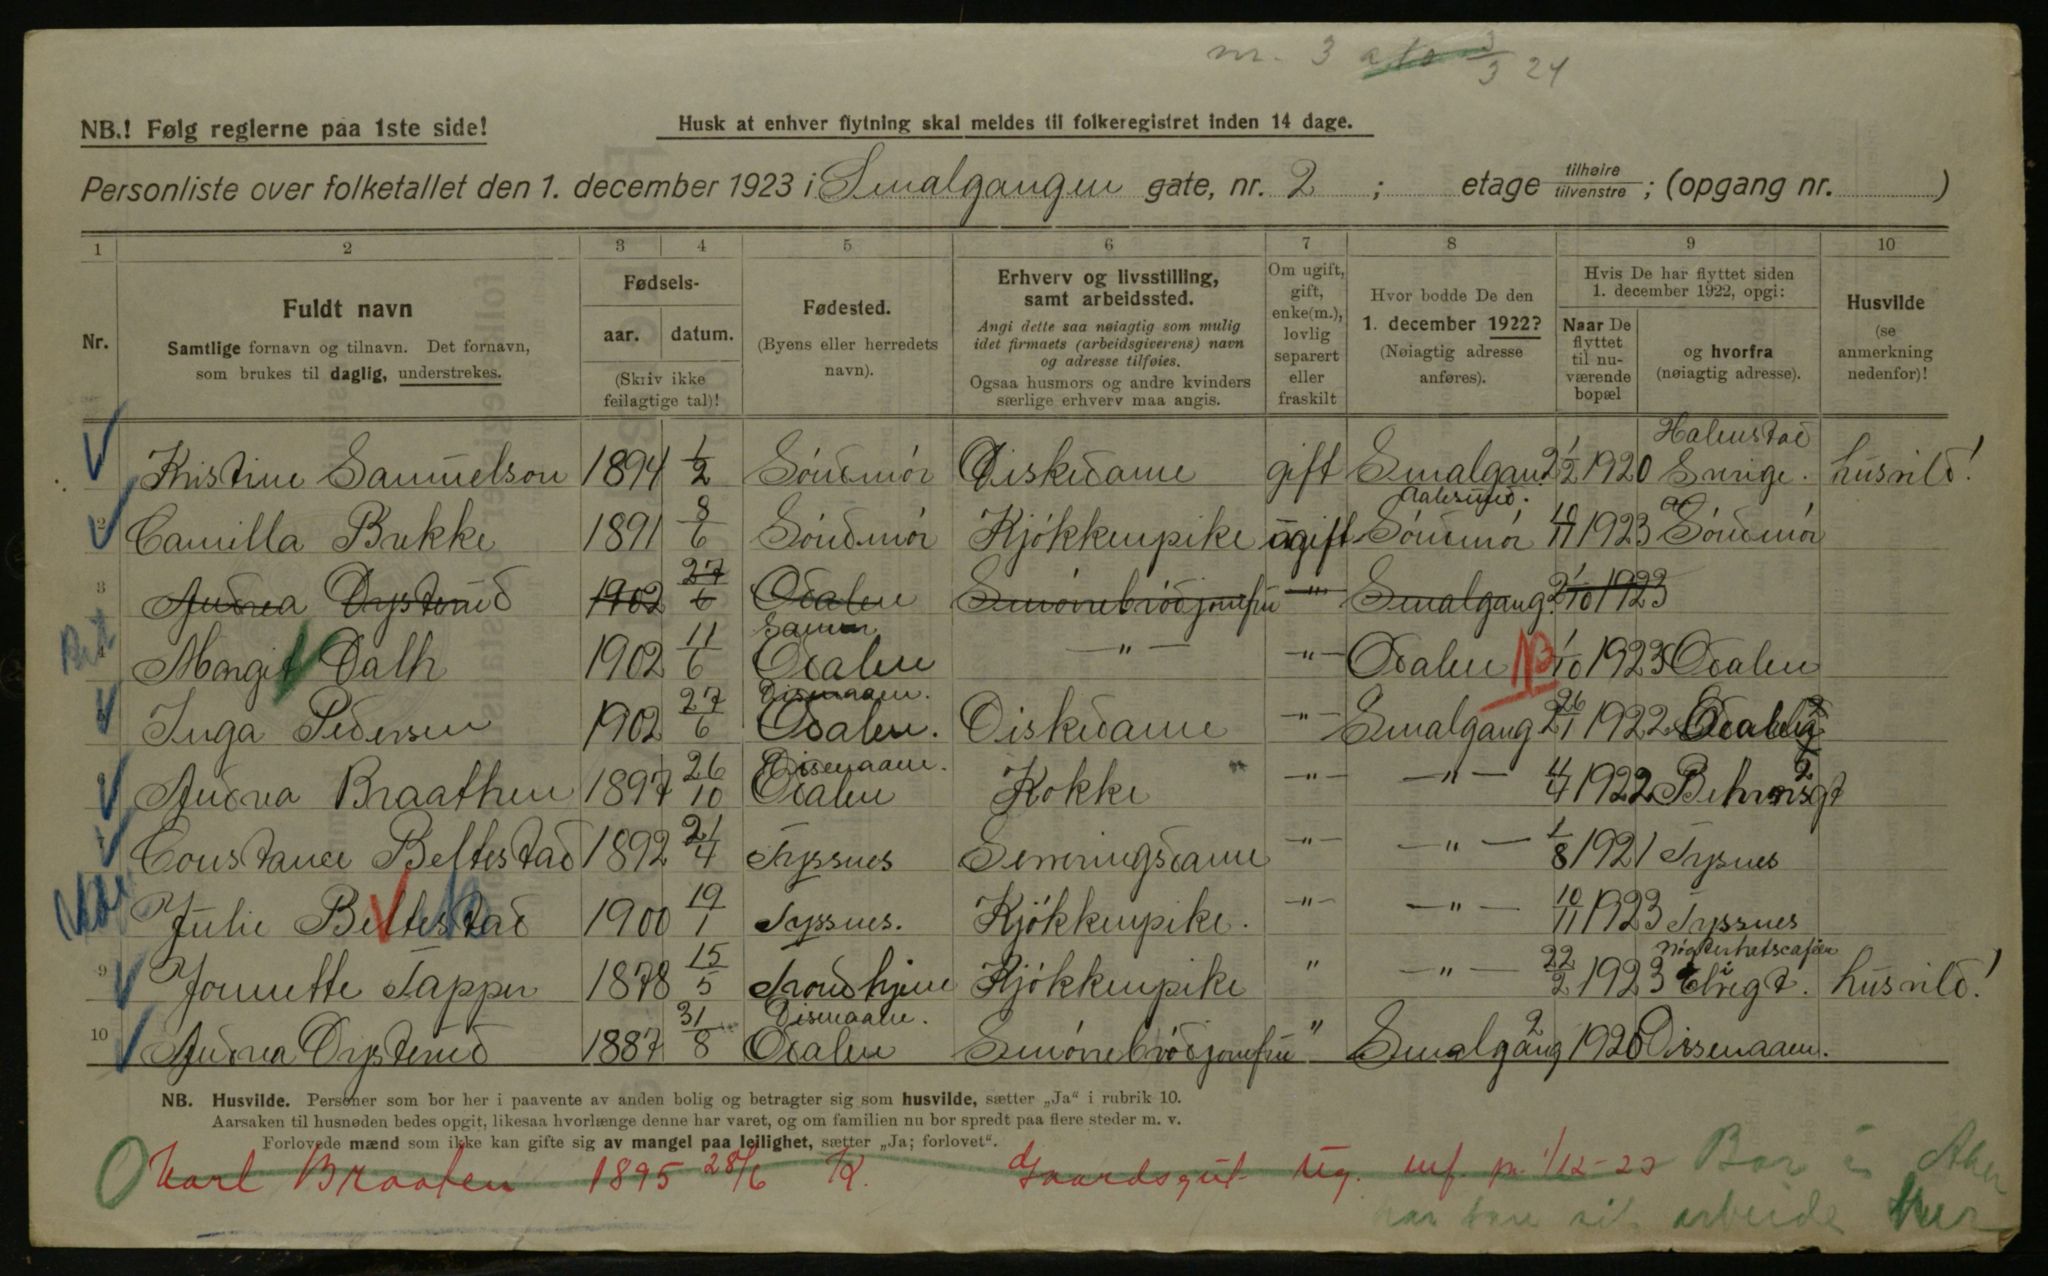 nr. 3 3/3 24
NB.! Følg reglerne paa 1ste side!
Husk at enhver flytning skal meldes til folkeregistret inden 14 dage.
Personliste over folketallet den 1. december 1923 i Smalgangen gate, nr. 2 ; etage tilhøire tilvenstre ; (opgang nr. )
1 2 3 4 5 6 7 8 9 10
Nr.
Fuldt navn
Samtlige fornavn og tilnavn. Det fornavn,
som brukes til daglig, understrekes.
Fødsels-
aar. datum.
(Skriv ikke
feilagtige tal)!
Fødested.
(Byens eller herredets
navn).
Erhverv og livsstilling,
samt arbeidssted.
Angi dette saa nøiagtig som mulig
idet firmaets (arbeidsgiverens) navn
og adresse tilføies.
Ogsaa husmors og andre kvinders
særlige erhverv maa angis.
Om ugift,
gift,
enke(m.),
lovlig
separert
eller
fraskilt
Hvor bodde De den
1. december 1922?
(Nøiagtig adresse
anføres).
Hvis De har flyttet siden
1. december 1922, opgi:
Naar De
flyttet
til nu-
værende
bopæl
og hvorfra
(nøiagtig adresse).
Husvilde
(se
anmerkning
nedenfor)!
Halmstad
Kristine Samuelson 1894 1/2 Söndmör Diskedame gift Smalgan. 2 1/2 1920 Sverige. husvild!
Aalesund.
2 Camilla Brekke 1891 8/6 Söndmör Kjökkenpike ugift Söndmör 1923 Söndmör
3 Andrea Dysterud 1902 27/6 Odalen Smörrebrödjomfru -"- Smalgang. 2 1/10 1923
Sander
4 Margit Dalh 1902 11/6 Odalen -"- -"- Odalen 1/10 1923 Odalen
Disenaaen.
Inga Pedersen 1902 27/6 Odalen. Diskedame -"- Smalgang 2 26/1 1922
Disenaaen.
Andrea Braathen 1897 26/10 Odalen Kokke -"- -"- 1922
Constance Beltestad 1892 21/4 Tyssnes Serveringsdame -"- -"- 1/8 1921 Tysnes
Julie Beltestad 1900 19/1 Tyssnes. Kjökkenpike. -"- -"- 10/11 1923 Tyssnes
9 Jonnette Tapper 1878 15/5 Trondhjem Kjökkenpike " -"- 22/2 1923 Elvegt. husvild!
Disenaaen.
10 Andrea Dysterud 1887 31/8 Odalen Smörrebrödjomfru " Smalgang 2 1920 Dissenaaen.
NB. Husvilde. Personer som bor her i paavente av anden bolig og betragter sig som husvilde, sætter „Ja“ i rubrik 10.
Aarsaken til husnøden bedes opgit, likesaa hvorlænge denne har varet, og om familien nu bor spredt paa flere steder m. v.
Forlovede mænd som ikke kan gifte sig av mangel paa leilighet, sætter „Ja; forlovet“.
Karl Braaten 1895 28/6 K. Gaardsgut ug. inf. pr. 1/12-23 Bor i Aker
har bare sit arbeide her